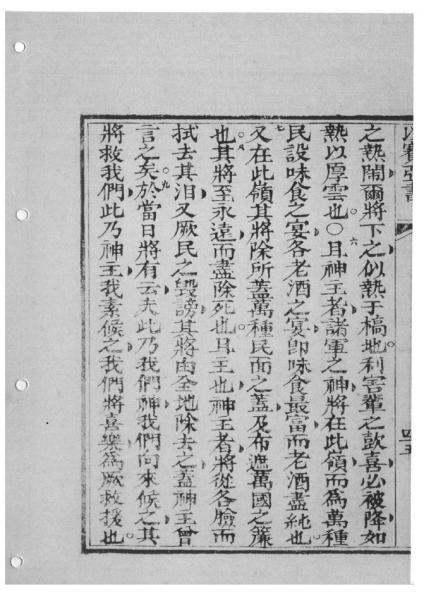 以賽亞書 四五
之熱鬧爾將下之似熱于槁地利害輩之歡喜必被降如
熱以厚雲也〇六且神主者諸軍之神將在此嶺而為萬種
民設味食之宴各老酒之宴即味食最富而老酒盡純也
七又在此嶺其將除所蓋萬種民面之蓋及布遮萬國之簾
也八其將至永遠而盡除死也且王也神主者將從各臉而
拭去其泪又厥民之毀謗其將由全地除去之蓋神主曾
言之矣九於當日將有云夫此乃我們神我們向來候之其
將救我們此乃神主我素候之我們將喜樂為厥救援也